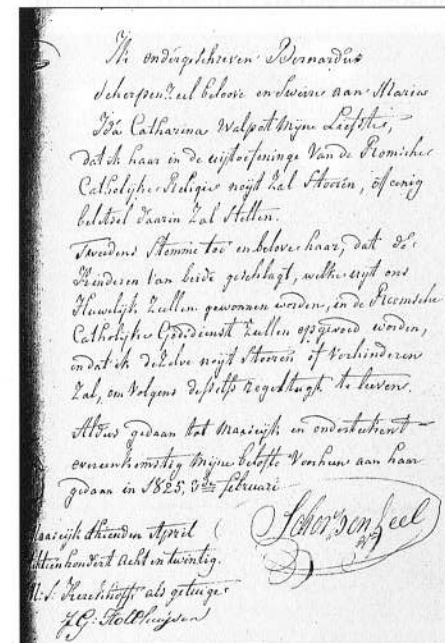 Ik ondergeschreven Bernardus
Scherpenzeel beloove en Sweire aan Maria
Ida Catharina Walpott Mijne Liefste,
dat ik haar in de uijtoefeninge Van de Romische
Catholijke Religie noijt Zal Stooren, of eenig
beletsel daarin Zal Stellen.
Tweedens Stemme toe en belove haar, dat de
Kinderen van beide geschlagt, welke uijt ons
Huwelijk Zullen gewonnen worden, in de Roomsche
Catholijke Godsdienst Zullen opgevoed worden,
en dat ik dezelve noijt Stooren of Verhinderen
Zal, om Volgens desselfs te leeven.
Aldus gedaan tot Maaseijk en ondertekent
overeenkomstig Mijne belofte Voorheen aan haar
gedaan in 1825, 3de februari
Scherpenzeel
Maaseijk thienden April
achtienhondert acht en twintig.
als getuige